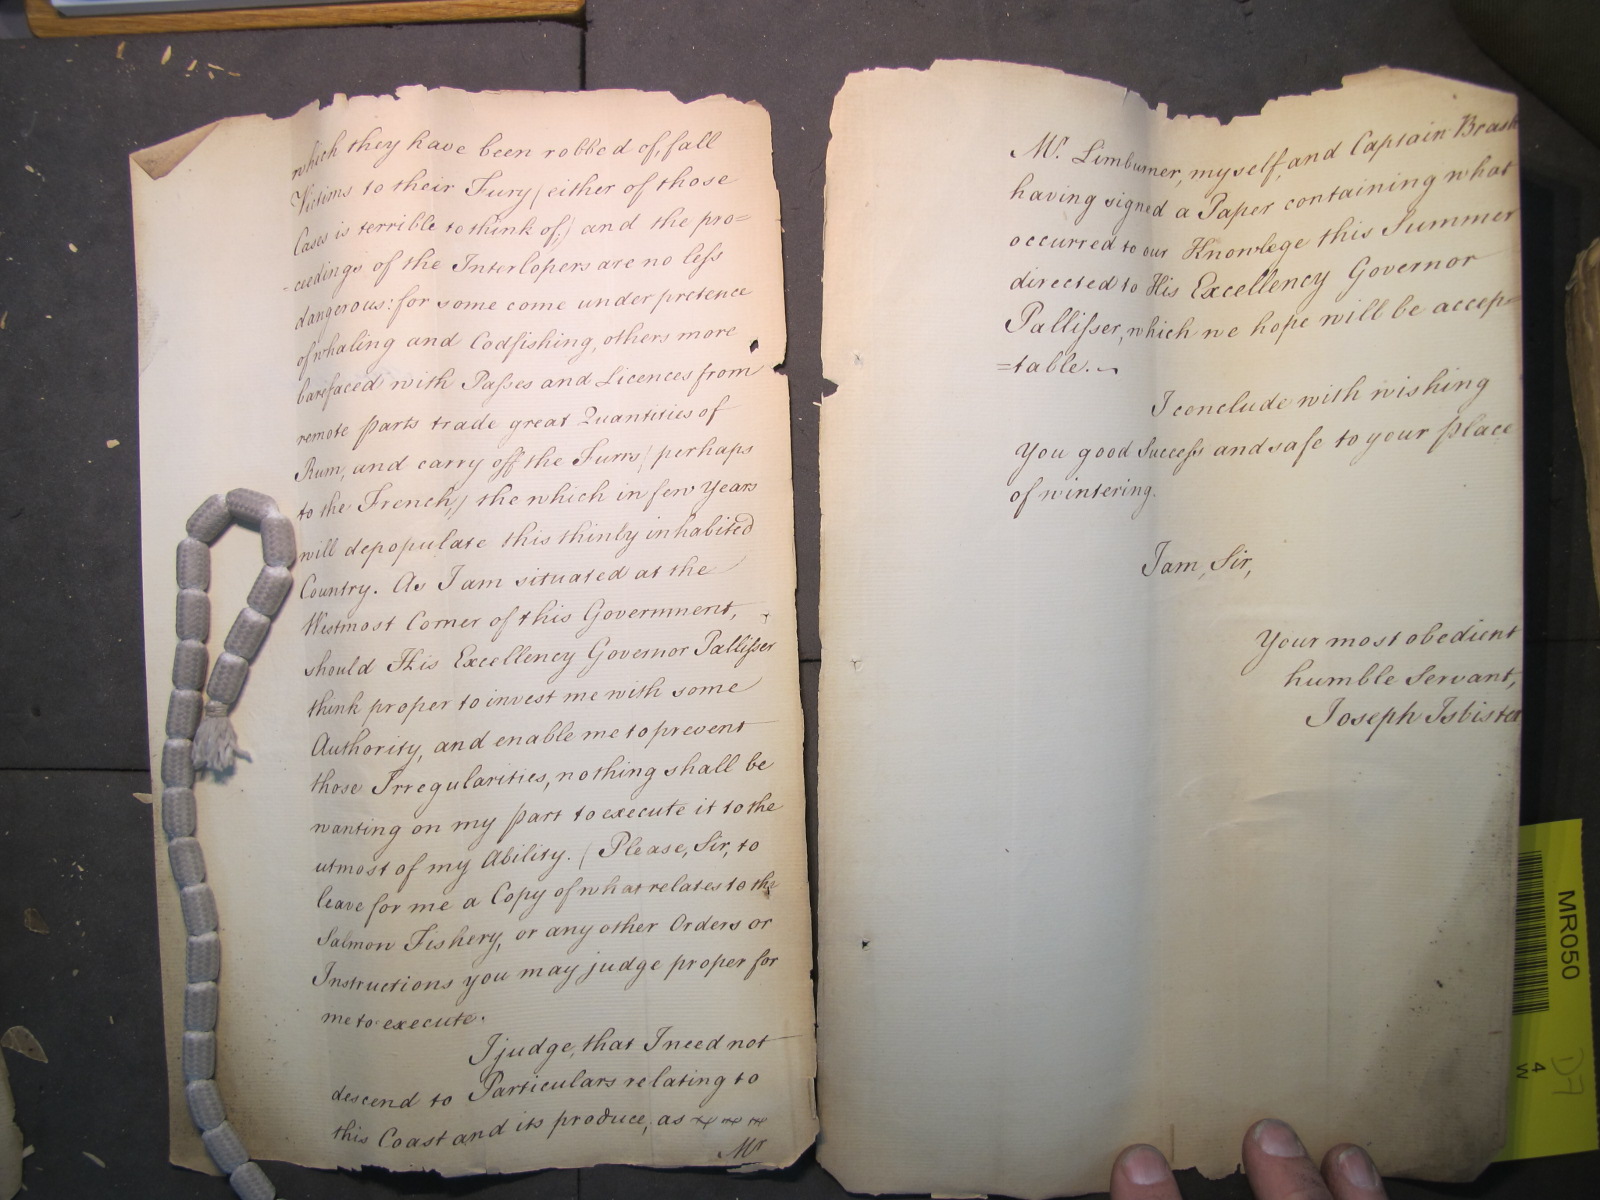 which they have been robbed of, fall
Victims to their Fury (either of those
Cases is terrible to think of;) and the pro=
-ceedings of the Interlopers are no less
dangerous: for some come under pretence
of whaling and Codfishing, others more
barefaced with Passes and Licences from
remote parts trade great Quantities of
Rum, und carry off the Furrs (perhaps
to the French,) the which in few Years
will depopulate this thinly inhabited
Country. As I am situated at the
Westmost Corner of this Government,
should His Excellency Governor Pallisser
think proper to invest me with some
Authority, and enable me to prevent
those Irregularities, nothing shall be
wanting on my part to execute it to the
utmost of my Ability. (Please, Sir, to
leave for me a Copy of what relates to the
Salmon Fishery, or any other Orders or
Instructions you may judge proper for
me to execute.
I judge, that I need not
descend to Particulars relating to
this Coast and its produce, as
Mr
Mr. Limburner, myself, and Captain Beash
having signed a Paper containing what
occurred to our Knowlege this Summer
directed to His Excellency Governor
Pallisser, which we hope will be accep=
=table.
I conclude with wishing
You good Success and safe to your place
of wintering.
I am, Sir,
Your most obedient
humble Servant,
Joseph Isbister
MR050
4
W
D7